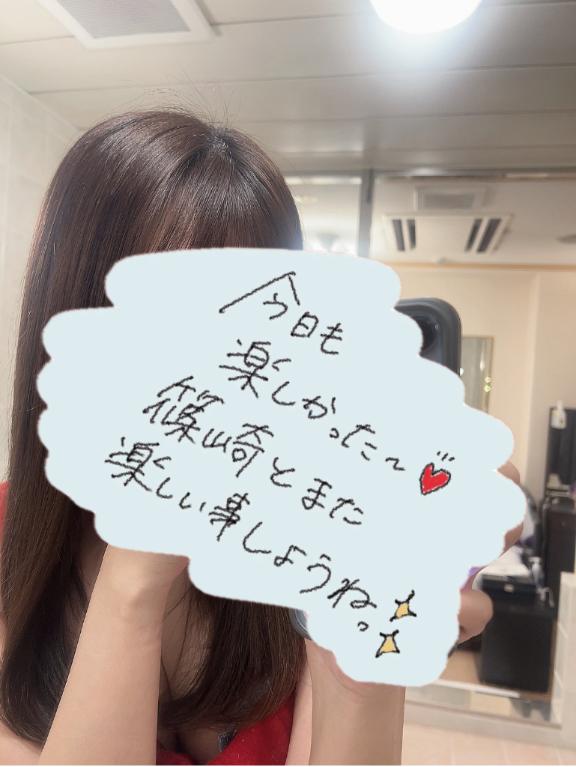 今日も
楽しかった〜
篠崎とまた
楽しい事しようね。